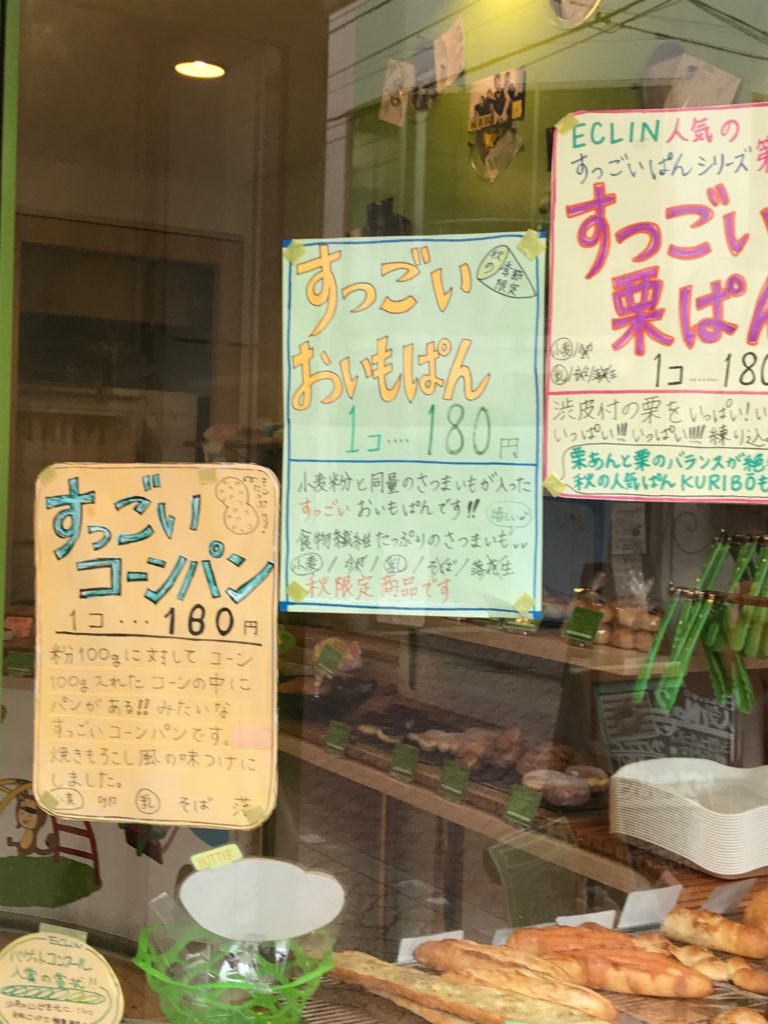 ECLIN人気の
すっごいぱんシリーズ
すっごい
栗ぱん
1コ……180
渋皮付の栗をいっぱい!
いっぱい!!!いっぱい!!!!練り込
栗あんと栗のバランスが絶
秋の人気ぱんKURIBOも
すっごい
秋の
季節
限定
おいもぱん
1コ‥‥180円
小麦粉と同量のさつまいもが入った
すっごいおいもぱんです!!
嬉しい
食物繊維たっぷりのさつまいも
小麦/卵/乳/そば/落花生
秋限定商品です
すっごい
コーンパン
1コ…180円
粉100gに対してコーン
100g入れたコーンの中に
パンがある!!みたいな
すっごいコーンパンです。
焼きもろこし風の味つけに
しました。
卵 乳 そば 落
BUTTER
ECLIN
バゲットコンクール
入賞の